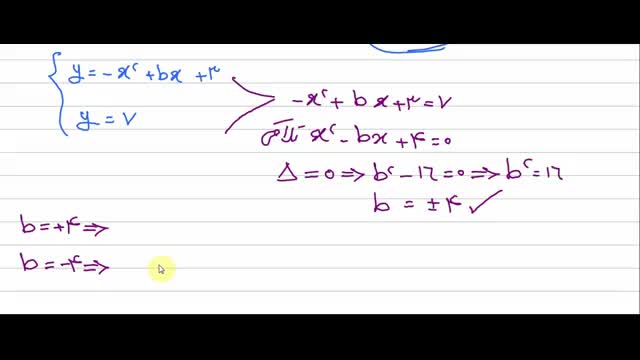 y = -x^۲ + bx + ۳
y = ۷
-x^۲ + bx + ۳ = ۷
تلاقی x^۲ - bx + ۴ = ۰
Δ = ۰ ⇒ b^۲ - ۱۶ = ۰ ⇒ b^۲ = ۱۶
b = ±۴ ✓
b = +۴ ⇒
b = -۴ ⇒